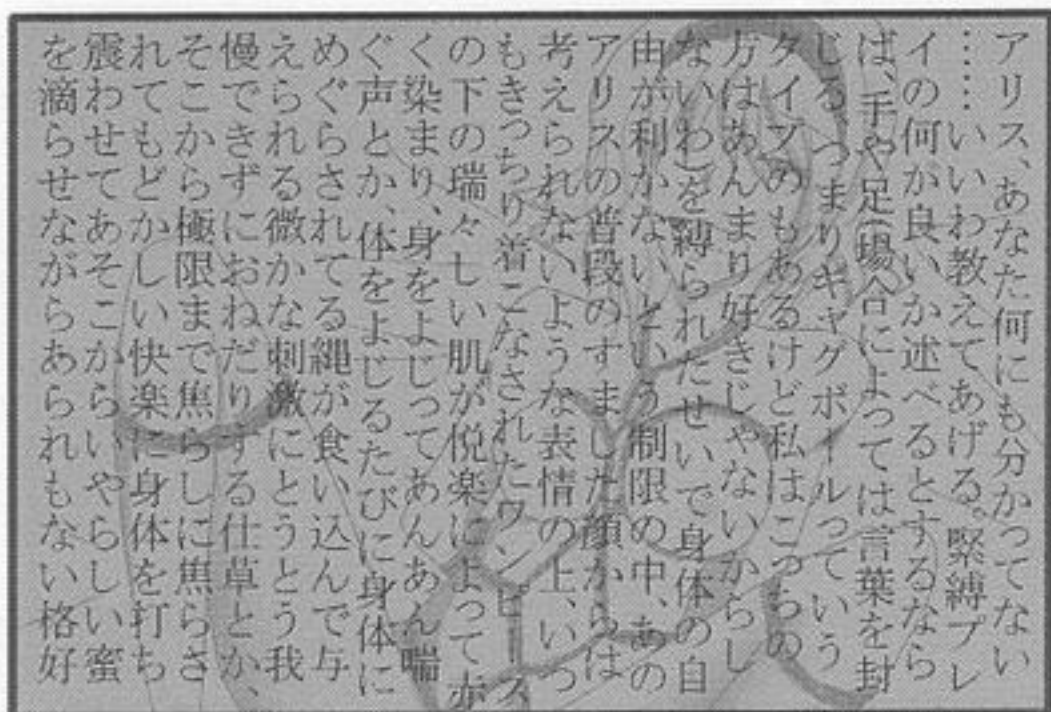 アリス、あなた何にも分かってない
……いいわ教えてあげる。緊縛プレ
イの何か良いか述べるとするなら
ば、手や足(場合によっては言葉を封
じる、つまりギャグボールっていう
タイプのもあるけど私はこっちの
方はあんまり好きじゃないからし
ないわ)を縛られたせいで身体の自
由が利かないという制限の中、あの
アリスの普段のすました顔からは
考えられないような表情の上、いつ
もきっちり着こなされたワンピース
の下の瑞々しい肌が悦楽によって赤
く染まり、身をよじってあんあん喘
ぐ声とか、体をよじるたびに身体に
めぐらされてる縄が食い込んで与
えられる微かな刺激にとうとう我
慢できずにおねだりする仕草とか、
そこから極限まで焦らしに焦らさ
れてもどかしい快楽に身体を打ち
震わせてあそこからいやらしい蜜
を滴らせながらあられもない格好